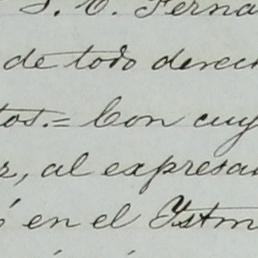 S. E. Ferna
de todo derech
tos.= Con cuy
r, al expresa
ó en el Istm